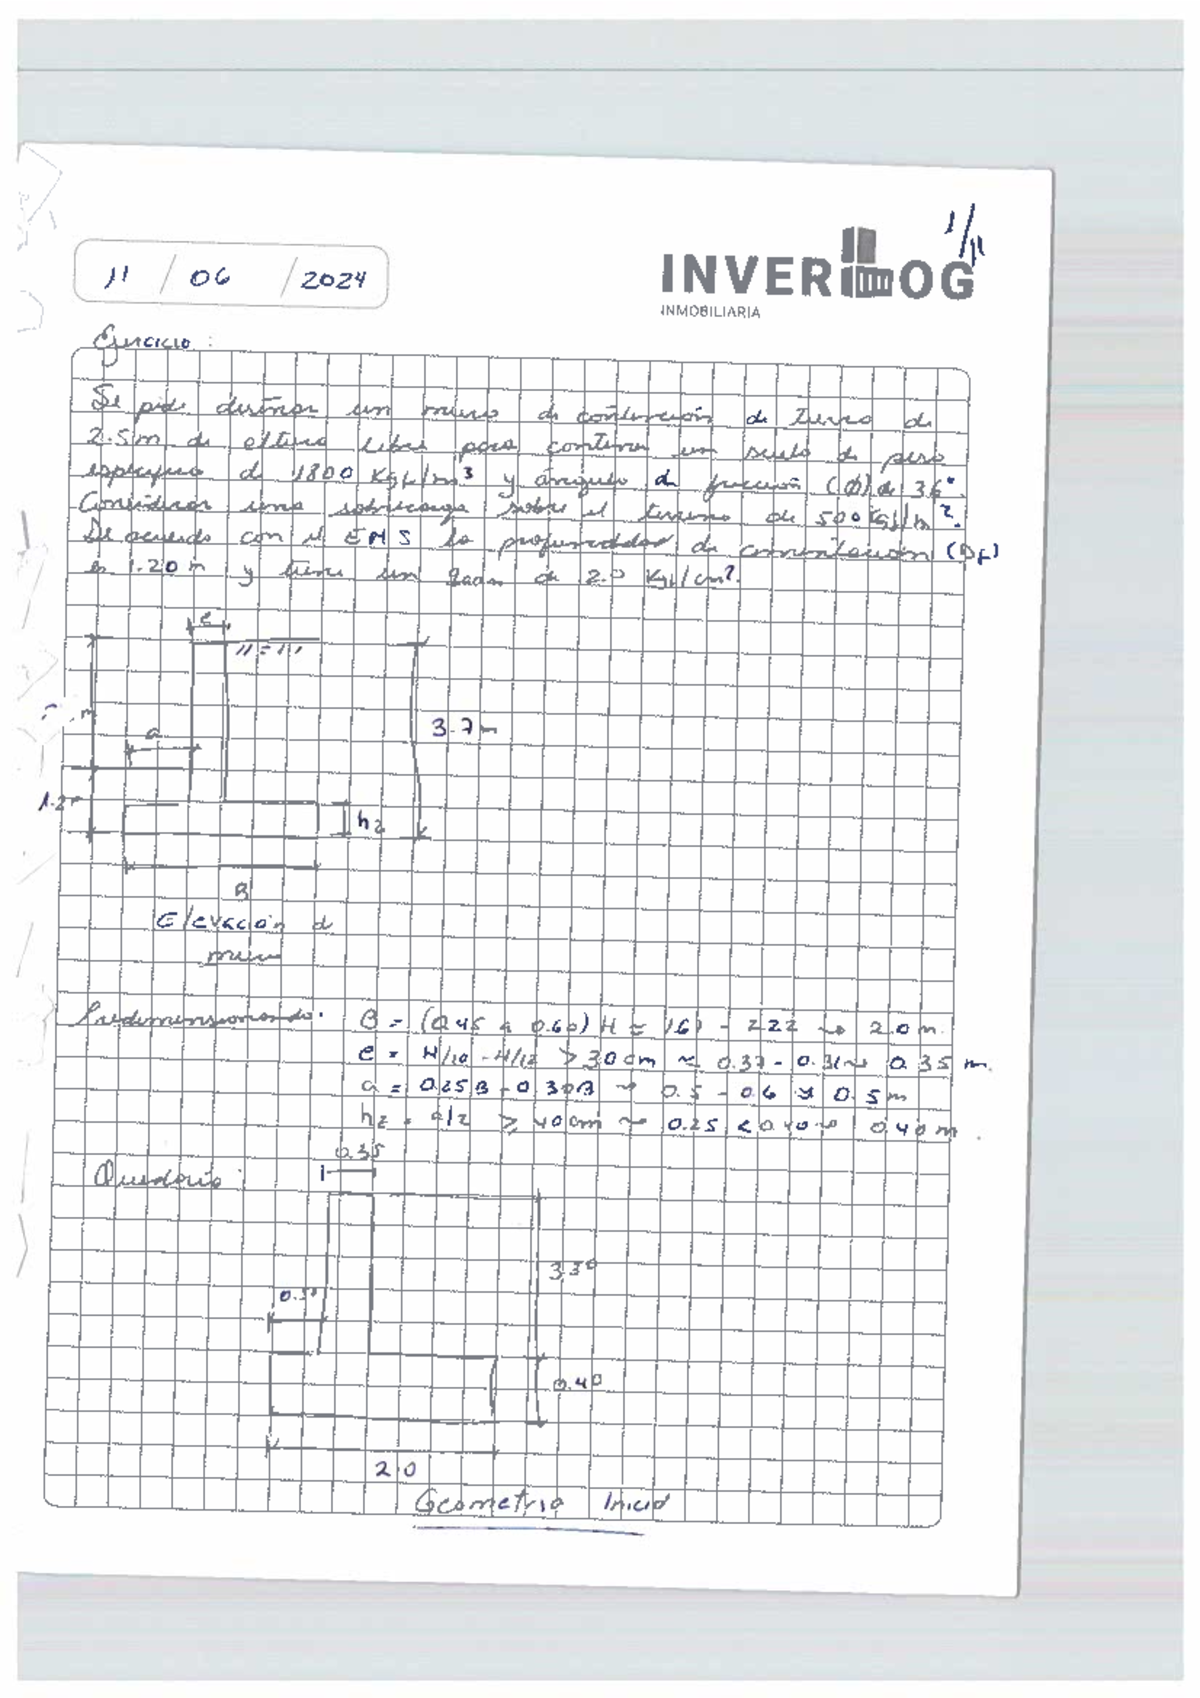 1/11
11 / 06 / 2024
INVERLOG
INMOBILIARIA
Ejercicio :
Se pide diseñar un muro de contención de tierra de
2.5m de altura libre para contener un suelo de peso
específico de 1800 Kgf/m³ y ángulo de fricción (Ø) de 36°.
Considerar una sobrecarga sobre el terreno de 500 Kgf/m².
De acuerdo con el EMS la profundidad de cimentación (Df)
es 1.20 m y tiene un qadm de 2.0 Kgf/cm².
e
a
3.7m
1.2
h2
B
Elevación de
muro
Predimensionando: B = (0.45 a 0.60) H = 1.67 - 2.22 → 2.0 m.
e = H/10 - H/12 > 30 cm ≈ 0.37 - 0.31 → 0.35 m.
a = 0.25B - 0.30B → 0.5 - 0.6 ≈ 0.5 m
h2 = a/2 ≥ 40cm → 0.25 < 0.40 → 0.40 m.
Quedaría :
0.35
3.30
0.40
2.0
Geometría Inicial